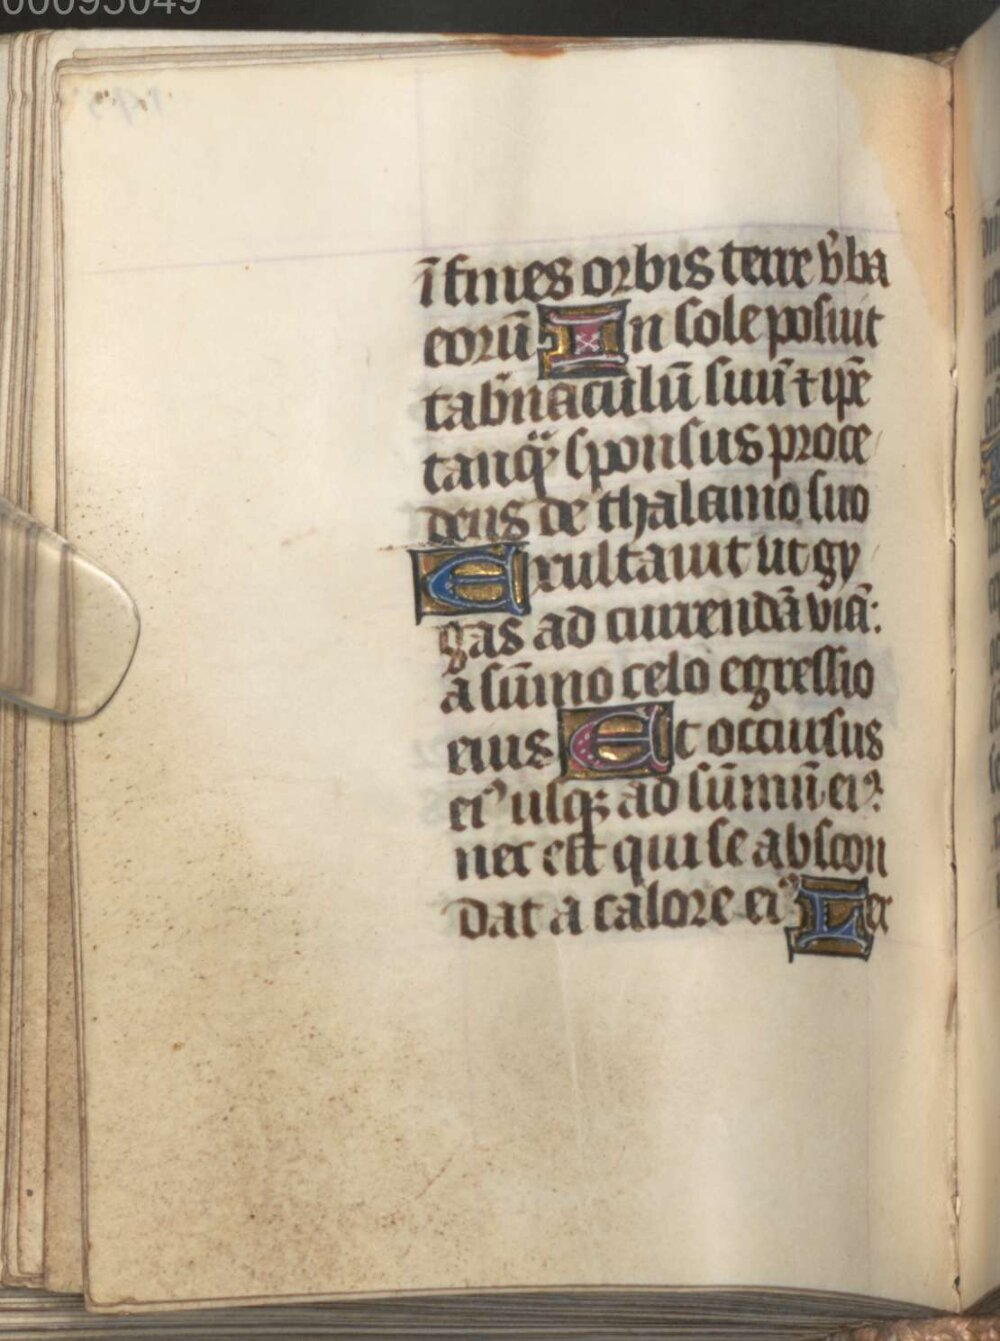 00095049
ī fines orbis terre ṽba
eorū In sole posuit
tab̃naculū suū ⁊ ip̃e
tanqͣꝫ sponsus proce
dens de thalamo suo
Exultauit ut gy
gas ad currendā viā:
a sūmo celo egressio
eius Et occursus
eiꝰ usqꝫ ad sūmū eiꝰ:
nec est qui se abscon
dat a calore eiꝰ Lex